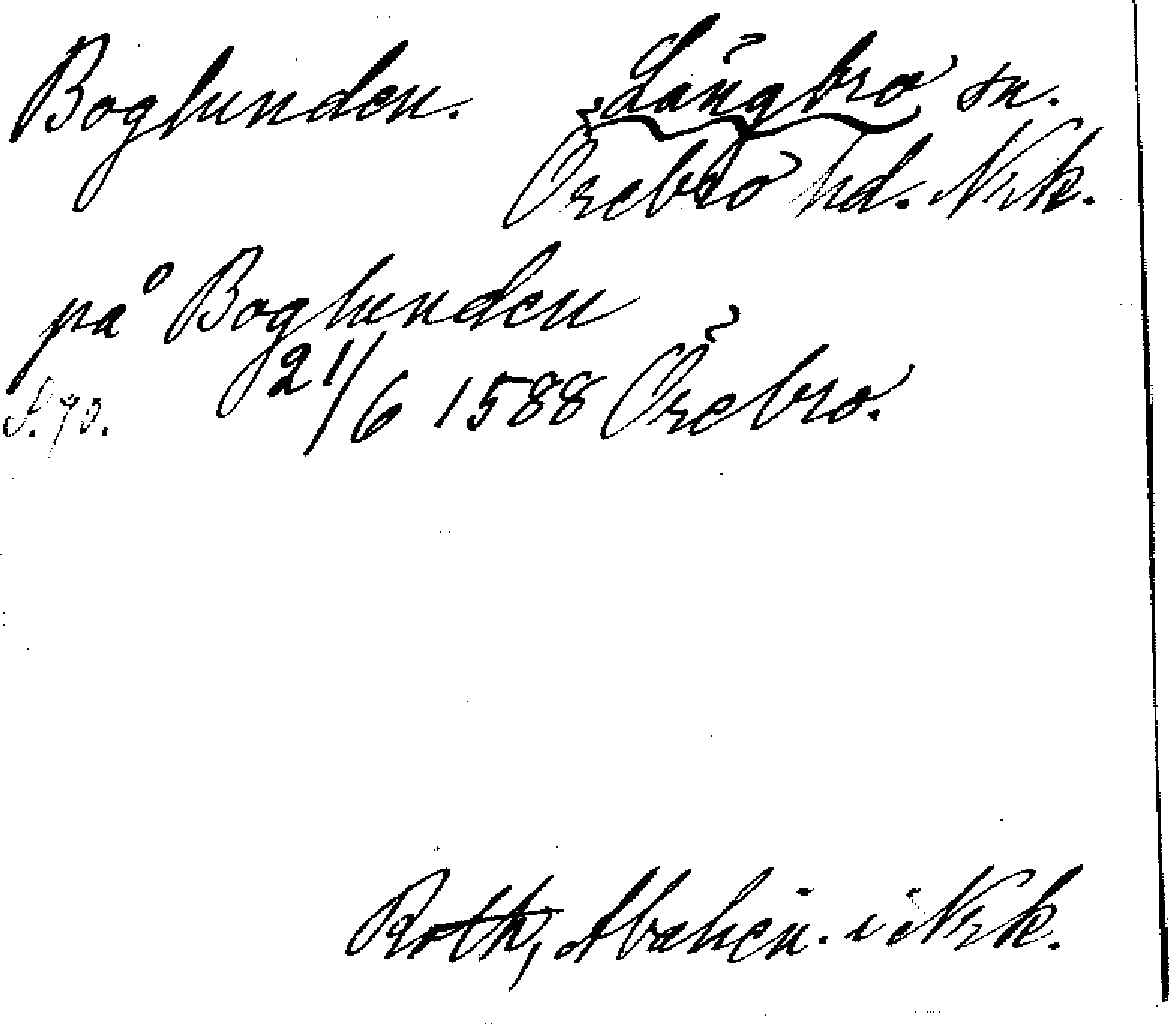 Boglunden. Långbro sn.
Örebro hd. Nrk.
på Boglunden
21/6 1588 Örebro.
S. 70.
Roth, i Nrk.